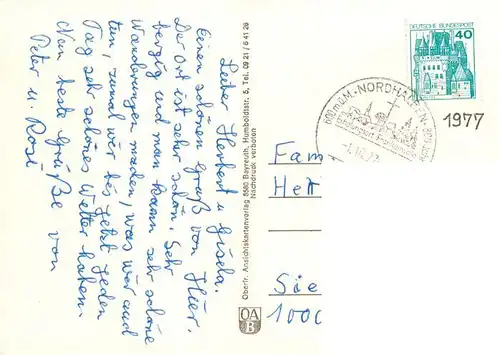 Lieber Herbert u. Gisela.
Einen schönen Gruß von Hier.
Der Ort ist sehr schön. Sehr
bergig und man kann sehr schöne
Wanderungen machen, was wir auch
tun, zumal wir bis jetzt jeden
Tag sehr schönes Wetter haben.
Nun beste Grüße von
Peter u. Rosi
Oberfr. Ansichtskartenverlag 8580 Bayreuth, Humboldtstr. 5, Tel. 09 21 / 6 41 26
Nachdruck verboten
OA
B
DEUTSCHE BUNDESPOST
40
NORDHALBEN
1977
Fam
Sie
1000